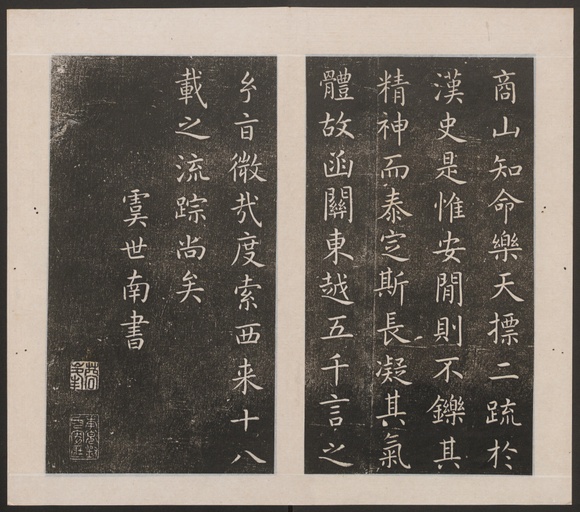 商山知命樂天摽二疏於
漢史是惟安閒則不鑠其
精神而泰定斯長凝其氣
體故函關東越五千言之
分盲微㢤度索西来十八
載之流踪尚矣
虞世南書